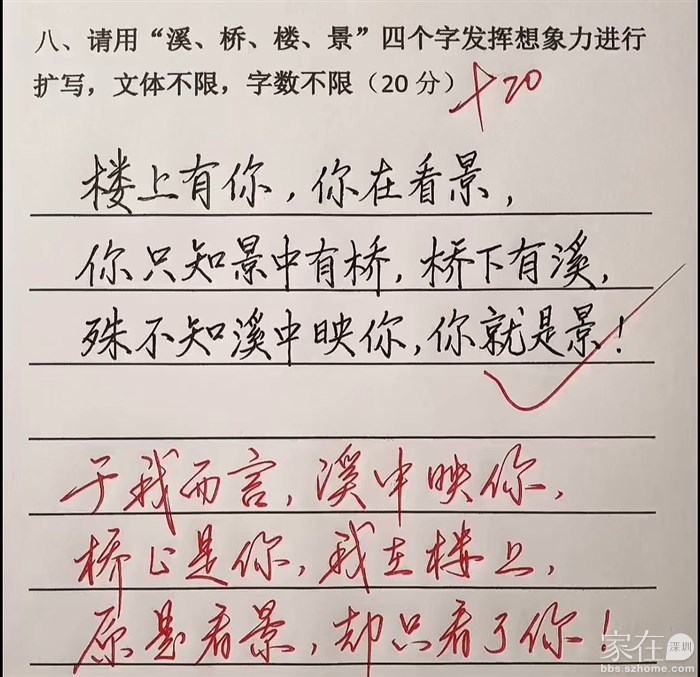 八、请用“溪、桥、楼、景”四个字发挥想象力进行
扩写，文体不限，字数不限（20 分）
+20
楼上有你，你在看景，
你只知景中有桥，桥下有溪，
殊不知溪中映你，你就是景！
于我而言，溪中映你，
桥上是你，我在楼上，
原是看景，却只看了你！
家在深圳
bbs.szhome.com